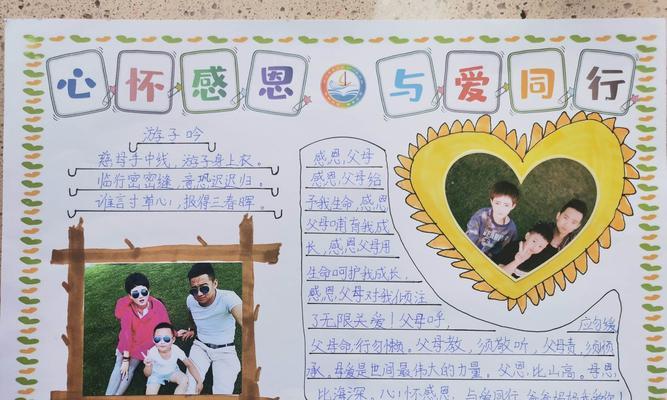 心怀感恩 与爱同行
游子吟
慈母手中线，游子身上衣。
临行密密缝，意恐迟迟归。
谁言寸草心，报得三春晖。
感恩，父母
感恩，父母给
予我生命，感恩
父母哺育我成
长，感恩父母用
生命呵护我成长，
感恩，父母对我倾注
了无限关爱！父母呼，应勿缓
父母命，行勿懒。父母教，须敬听，父母责，须顺
承。母爱是世间最伟大的力量。父恩，比山高。母恩，
比海深。心怀感恩，与爱同行